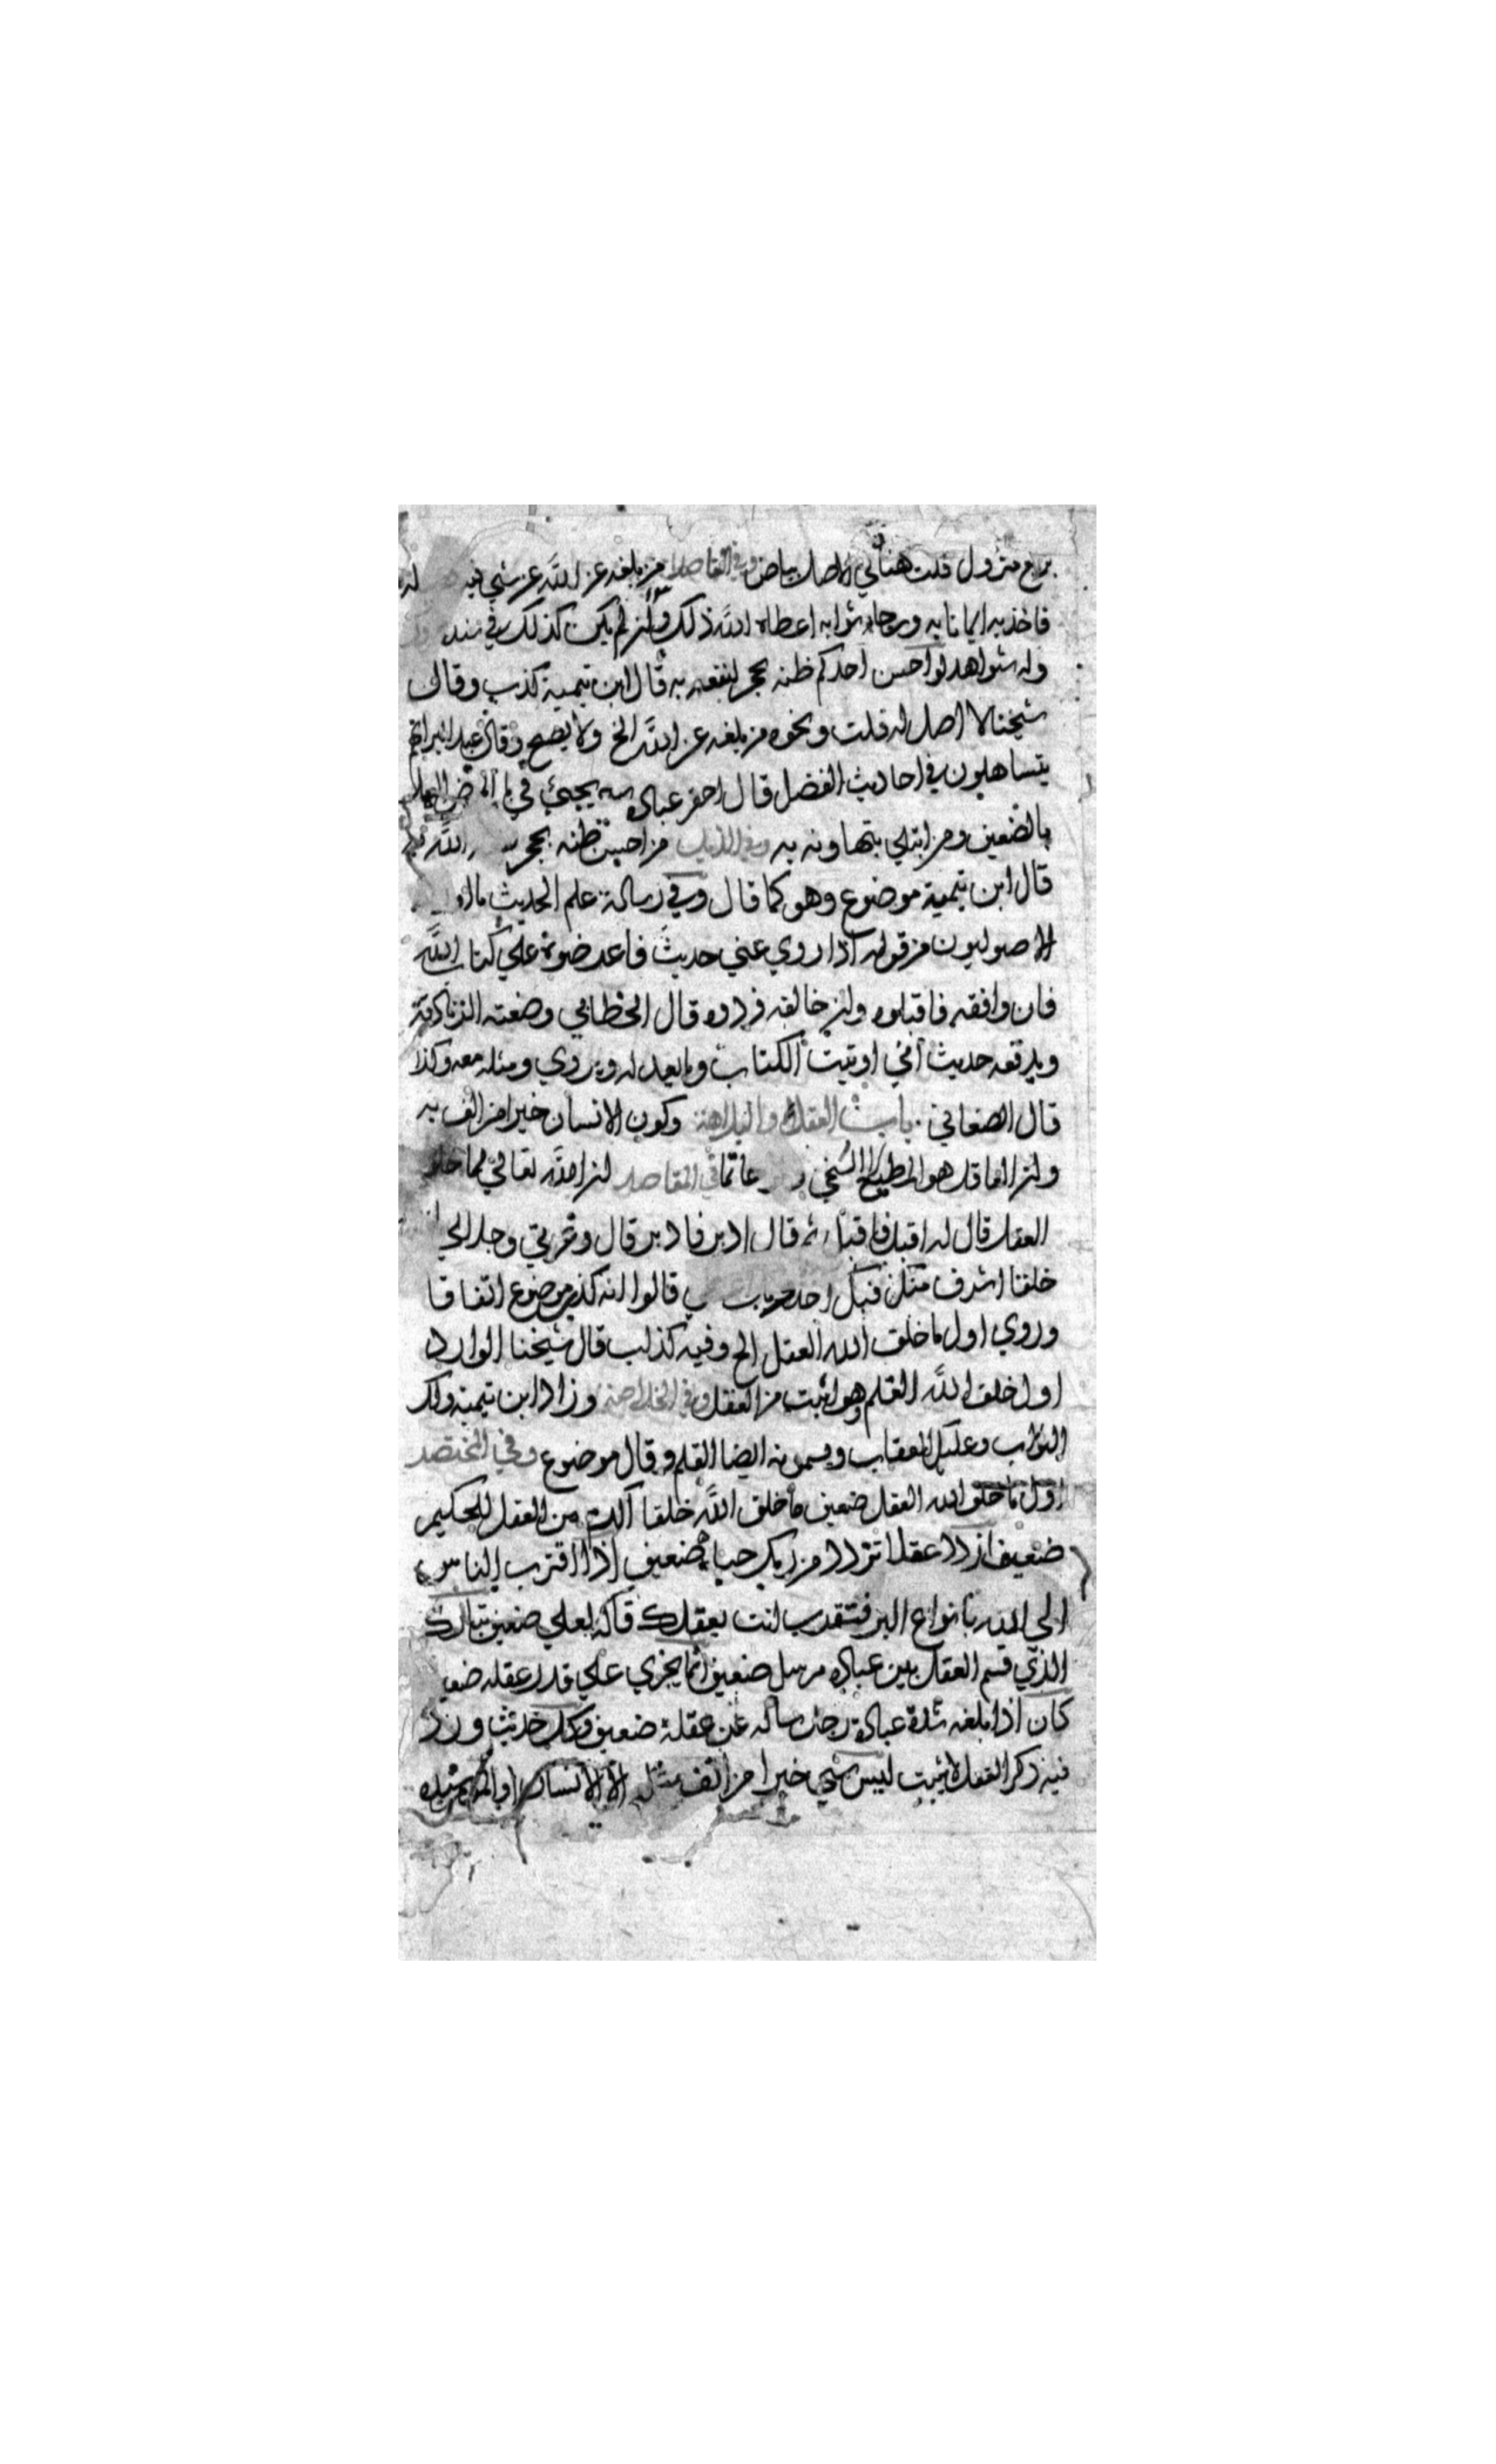 بزيع متروك قلت هنا في الاصل بياض وفي المقاصد من بلغه عن الله عز شيء فيه
فاخذ به ايمانا به ورجاء ثوابه اعطاه الله ذلك وان لم يكن كذلك في سنده
وله شواهد لو احسن احدكم ظنه بحجر لنفعه به قال ابن تيمية كذب وقال
شيخنا لا اصل له قلت ونحوه من بلغه عن الله الخ ولا يصح وقال عبد البر انهم
يتساهلون في احاديث الفضل قال احقر عباده يجيئ في
بالضعيف ومن ابتلي بتهاونه به وفي الذيل من احسن ظنه بحجر الله
قال ابن تيمية موضوع وهو كما قال وفي رسالة علم الحديث
الاصوليون من قوله اذا روي عني حديث فاعرضوه علي كتاب الله
فان وافقه فاقبلوه وان خالفه فردوه قال الخطابي وضعته الزنادقة
ويدفعه حديث اني اوتيت الكتاب وما يعدله ويروي ومثله معه وكذا
قال الصغاني باب العقل والبلاهة وكون الانسان خيرا من الف به
وان العاقل هو المطيع السخي في المقاصد ان الله تعالي لما خلق
العقل قال له اقبل فاقبل ثم قال ادبر فادبر قال وعزتي وجلالي
خلقا اشرف منك فبك اخذ قالوا انه كذب موضوع اتفاقا
وروي اول ما خلق الله العقل الخ وفيه كذاب قال شيخنا الوارد
اول خلق الله القلم وهو اثبت من العقل وفي الخلاصة وزاد ابن تيمية ولك
الثواب وعليك العقاب ويسمونه ايضا القلم وقال موضوع وفي المختصر
اول ما خلق الله العقل ضعيف ما خلق الله خلقا اكرم من العقل للحكيم
ضعيف ازدد عقلا تزدد من ربك حبا ضعيف اذا اقترب الناس
الي الله بانواع البر فتقرب انت بعقلك قاله لعلي ضعيف تبارك
الذي قسم العقل بين عباده مرسل ضعيف انما يجزي علي قدر عقله ضعيف
كان اذا بلغه شدة عبادة رجل ساله عن عقله ضعيف وكل حديث ورد
فيه ذكر العقل لا يثبت ليس شيء خيرا من الف مثله الا الانسان